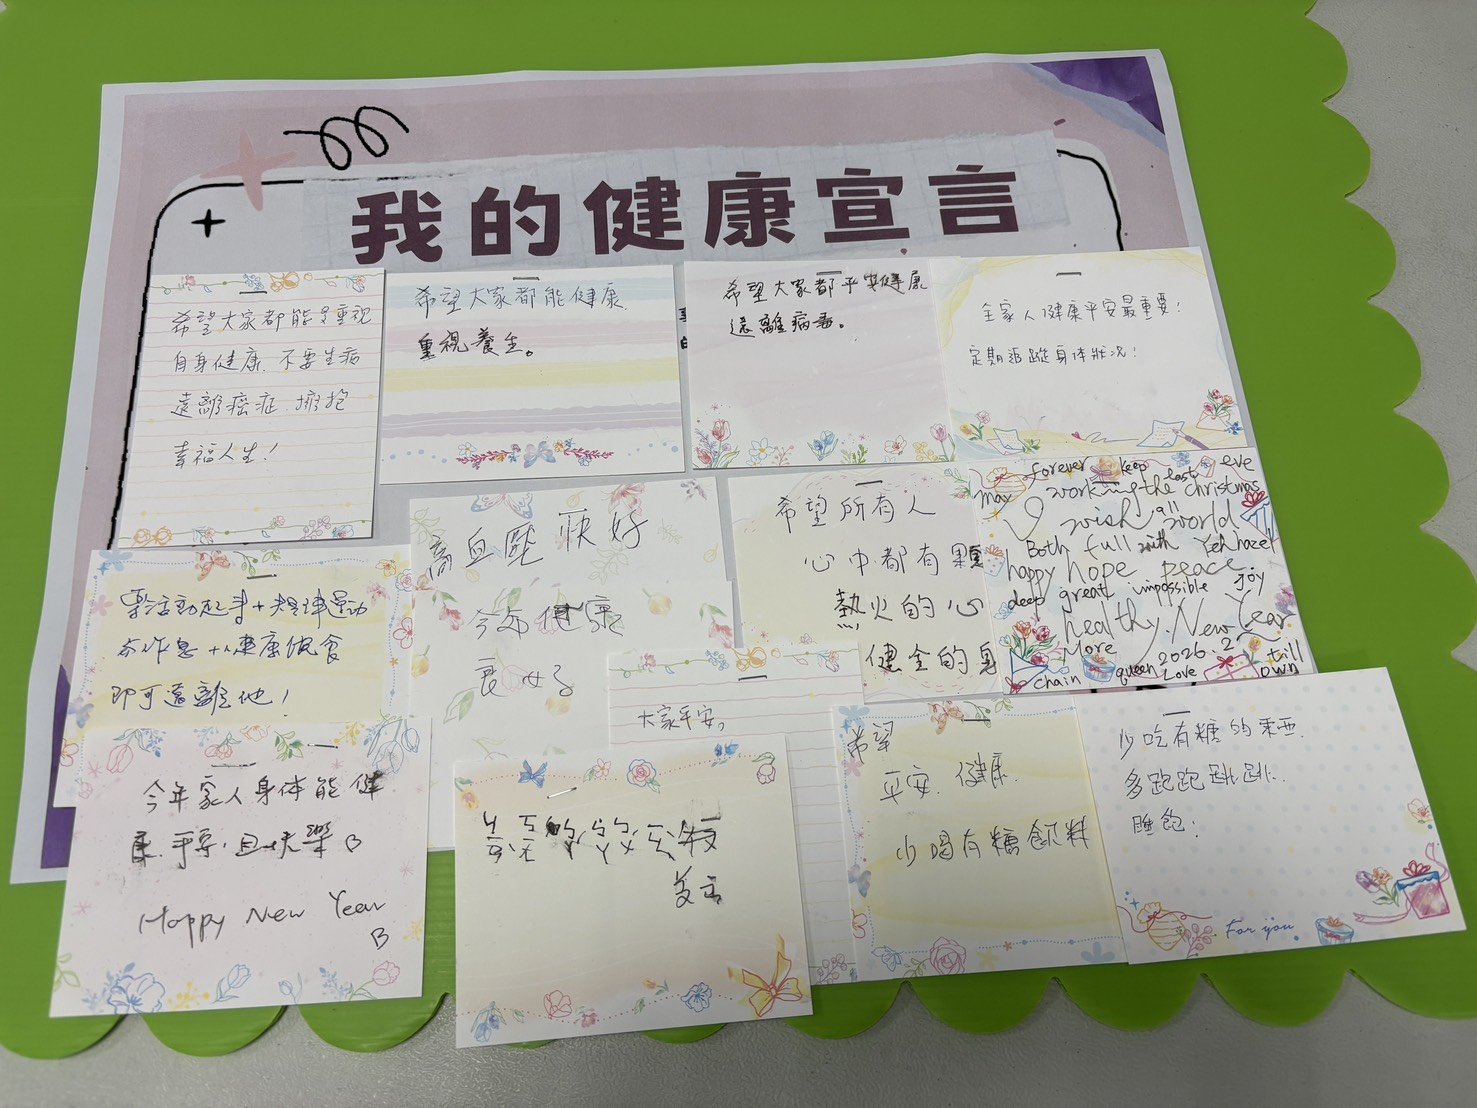 我的健康宣言
希望大家都能重視
自身健康.不要生病
遠離癌症.擁抱
幸福人生!
希望大家都能健康.
重視養生。
希望大家都平安健康
遠離病毒。
全家人健康平安最重要!
定期追蹤身体狀況!
靈活動起身+規律運動
作息+健康飲食
即可遠離他!
高血壓快好
今年健康
良好
希望所有人
心中都有顆
熱火的心
健全的身
forever keep lasts eve
may working the christmas
wish all world
Both full with Yeh hazel
happy hope peace
deep great impossible Joy
healthy. New Year
More 2026.2 till
chain queen Love own
大家平安。
今年家人身体能健
康.平安.且快樂
Happy New Year
希望
平安.健康.
少喝有糖飲料
少吃有糖的東西.
多跑跑跳跳.
睡飽.
For you